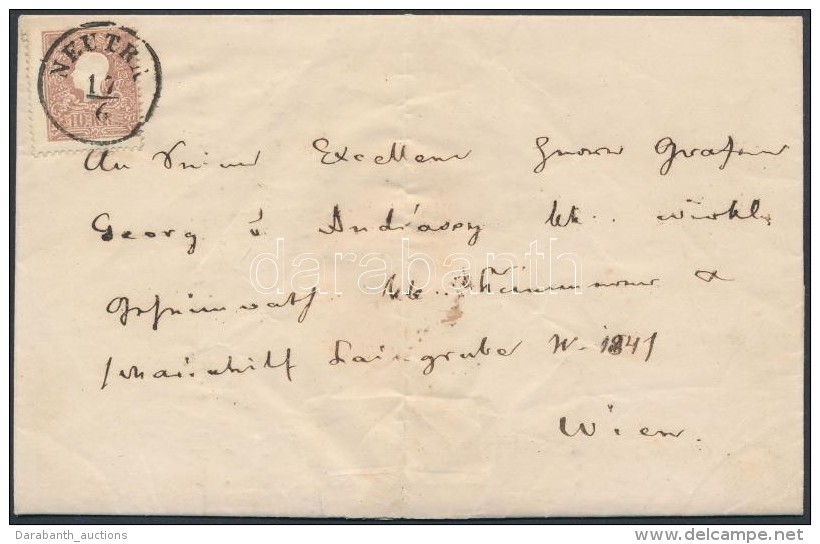 NEUTRA
10
6
10 Kr
An Seine Excellenz Herrn Grafen
Georg v. Andrássy kk. wirkl.
darabanth
Geheimrath kk. Kämmerer &
Mariahilf Laimgrube N-
Wien.
Darabanth_auctions
delcampe.net